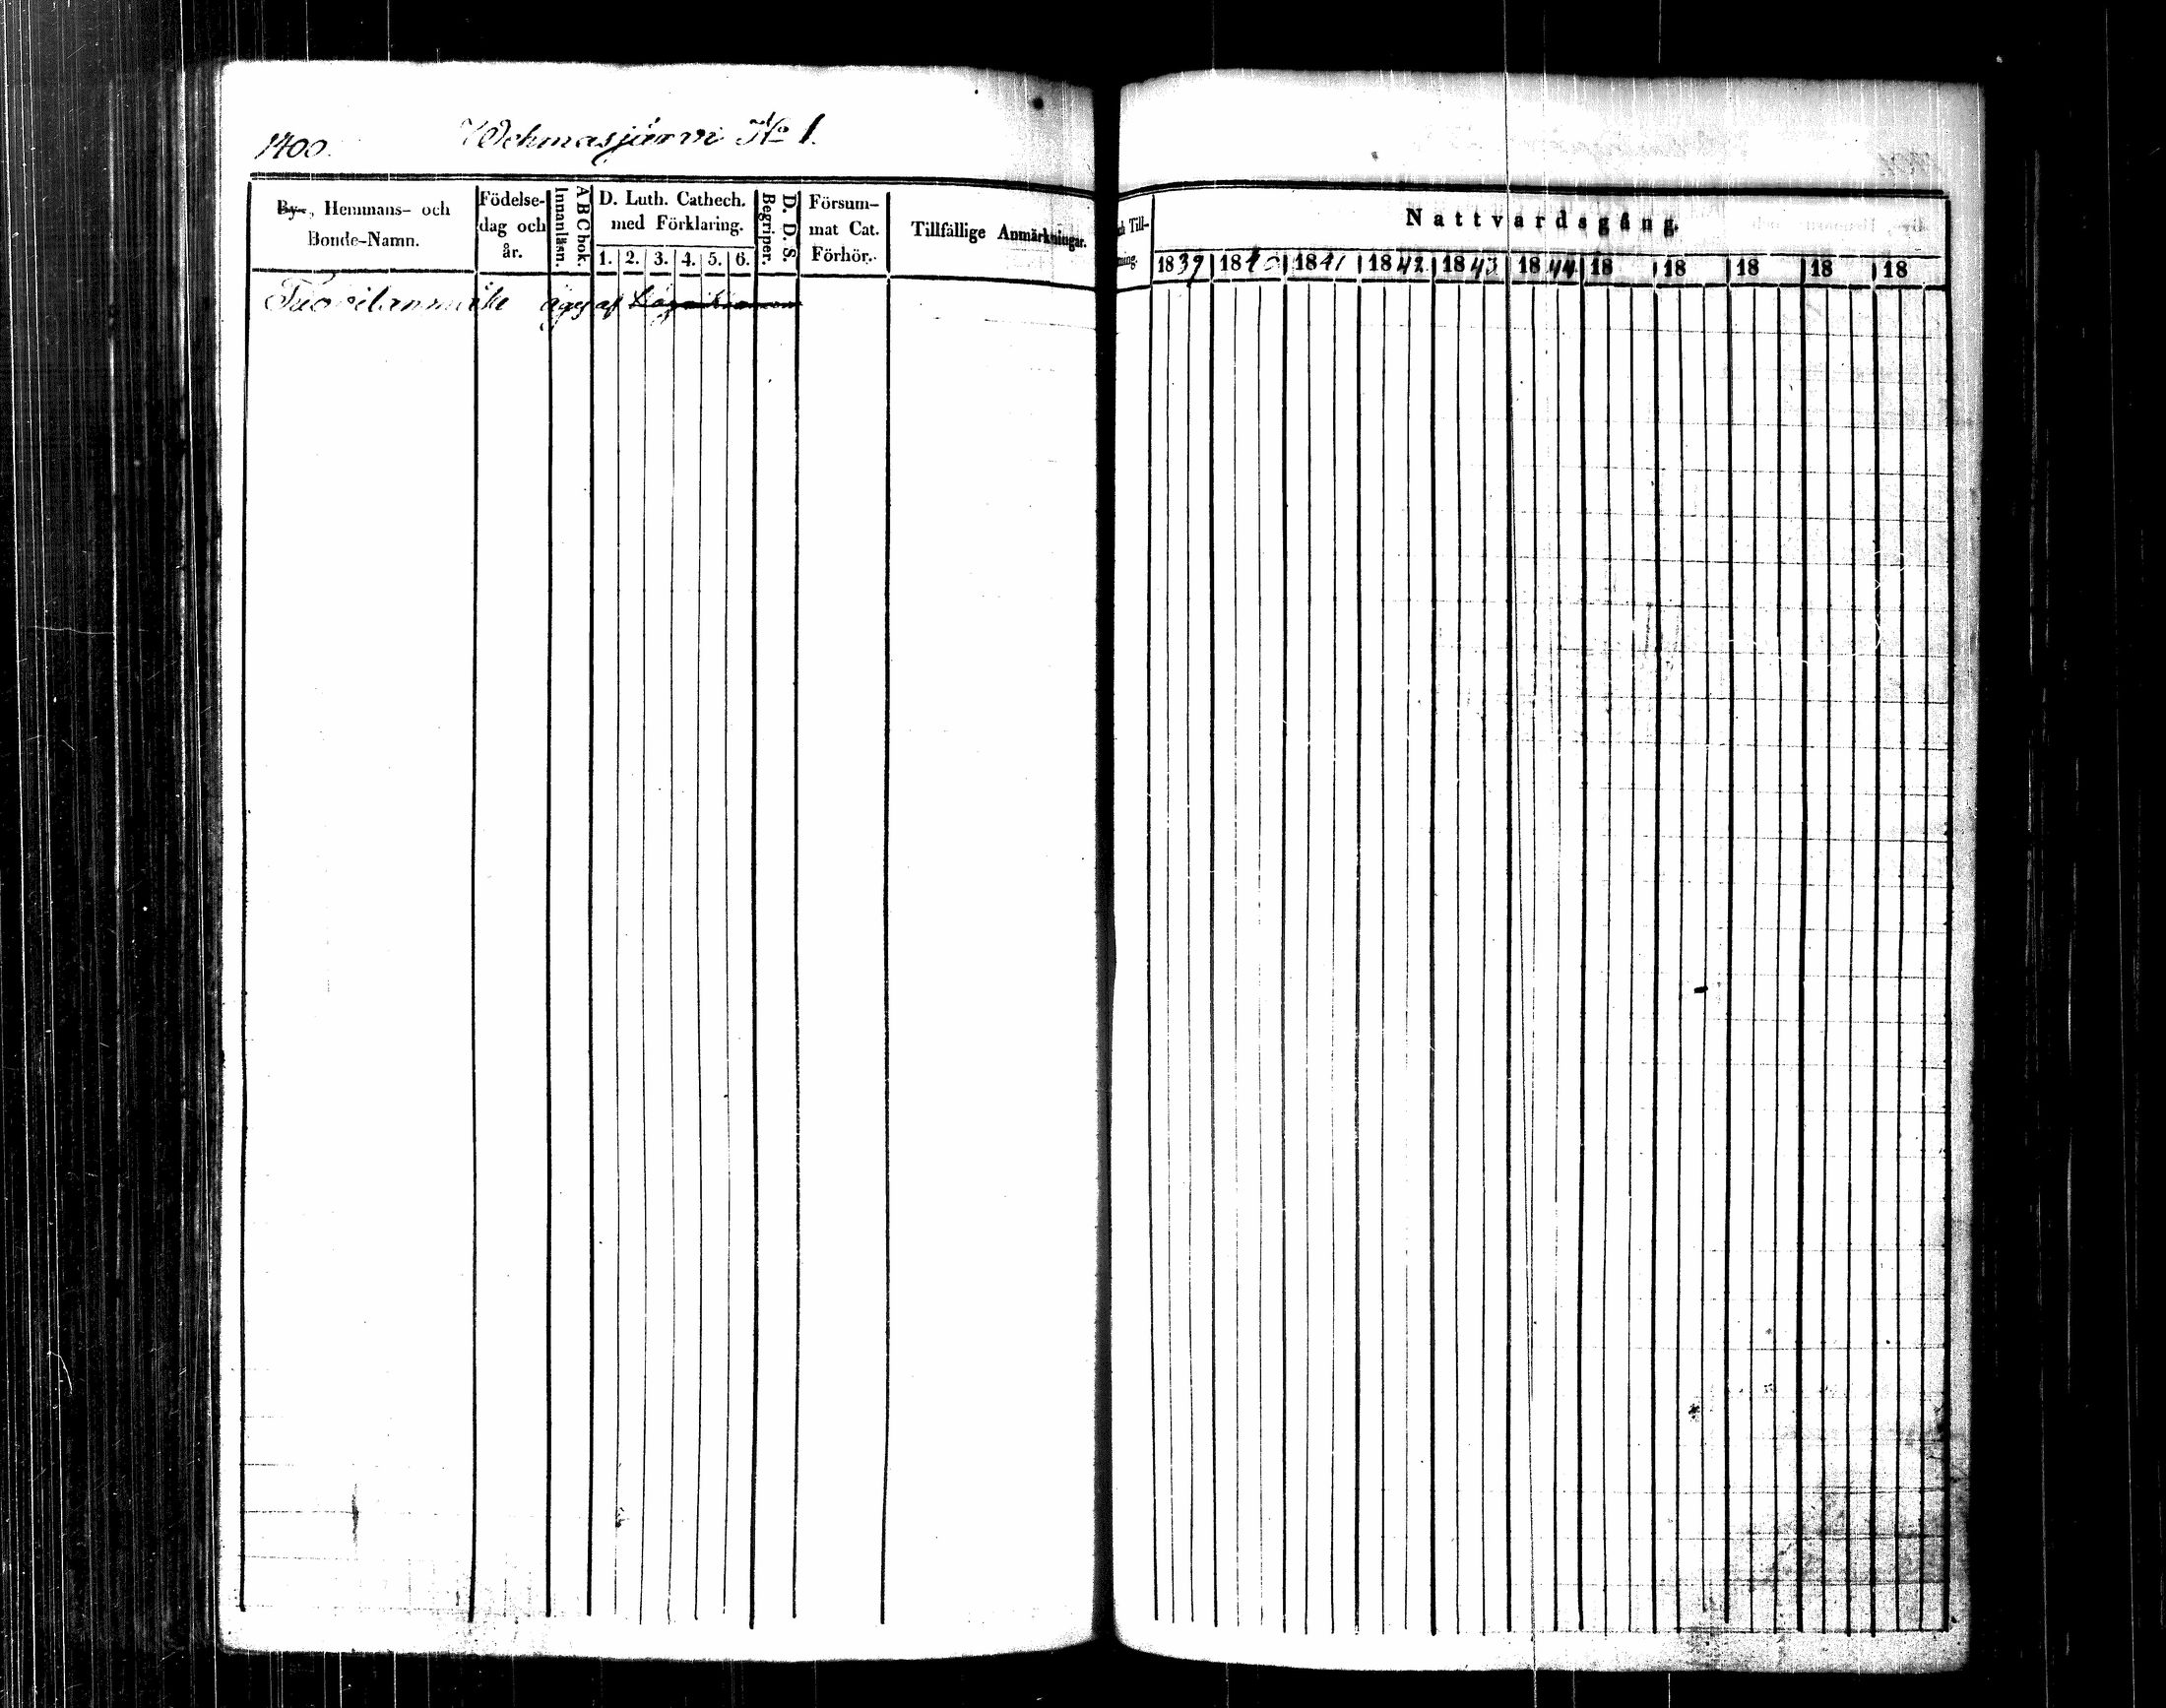 1400.
Wehmasjärvi No 1.
By-, Hemmans- och Bonde-Namn.
Födelse-dag och år.
Innanläsn.
A B C bok.
D. Luth. Cathech. med Förklaring.
1. 2. 3. 4. 5. 6.
Begriper.
D. D. S.
Försum-mat Cat. Förhör.
Tillfällige Anmärkningar.
äges af
Till-
Nattvardsgång.
1839 1840 1841 1842 1843 1844 18 18 18 18 18